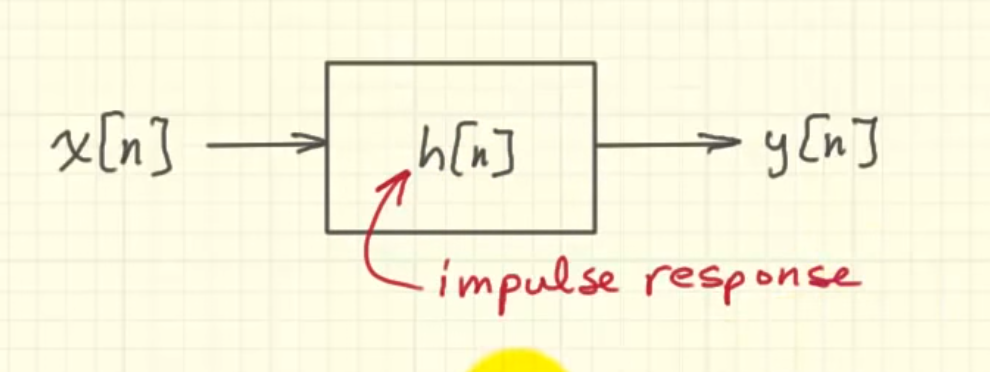 x[n] h[n] y[n]
impulse response